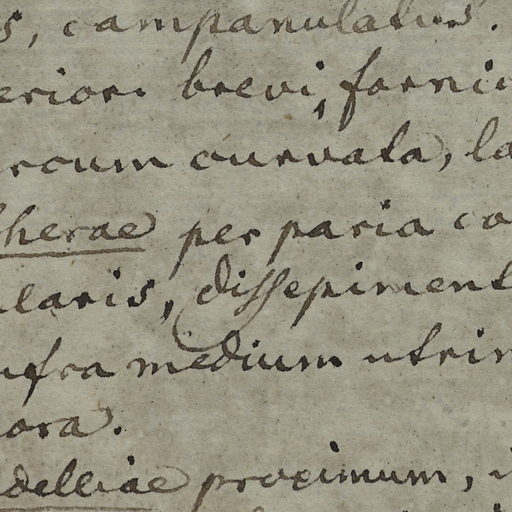 s, campanulatus.
eriori brevi, fornic
rcum curvata, la
therae per paria co
ularis, dissepiment
nfra medium utrin
ora.
delliae proximum, i